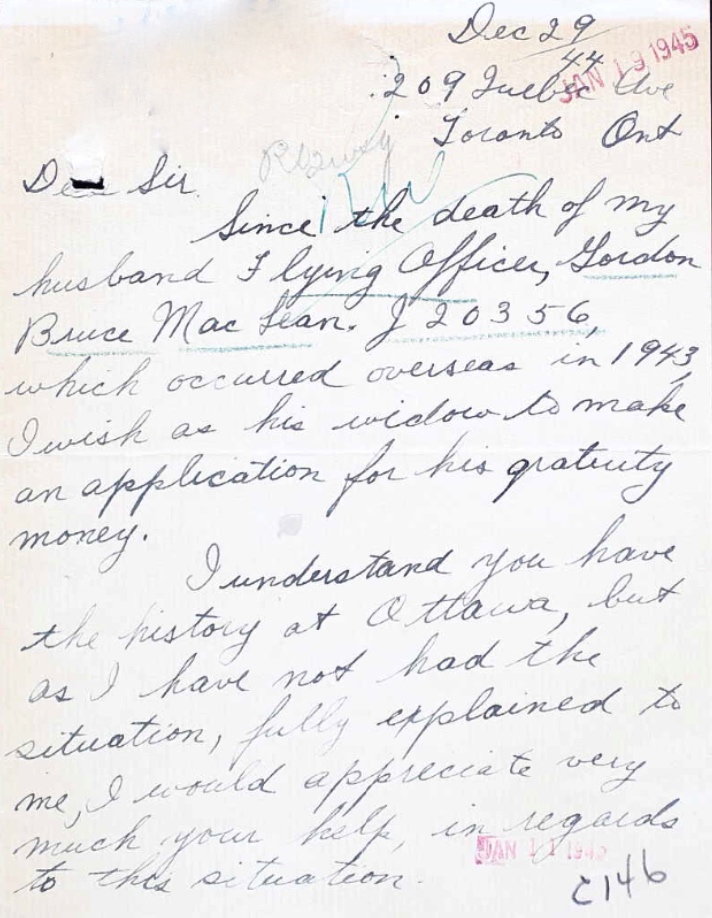 Dec 29
44
JAN 19 1945
209 Quebec Ave
Toronto Ont
Dear Sir
Since the death of my
husband Flying Officer, Gordon
Bruce MacLean. J 20356,
which occurred overseas in 1943,
I wish as his widow to make
an application for his gratuity
money.
I understand you have
the history at Ottawa, but
as I have not had the
situation, fully explained to
me, I would appreciate very
much your help, in regards
to this situation.
JAN 11 1945
C146